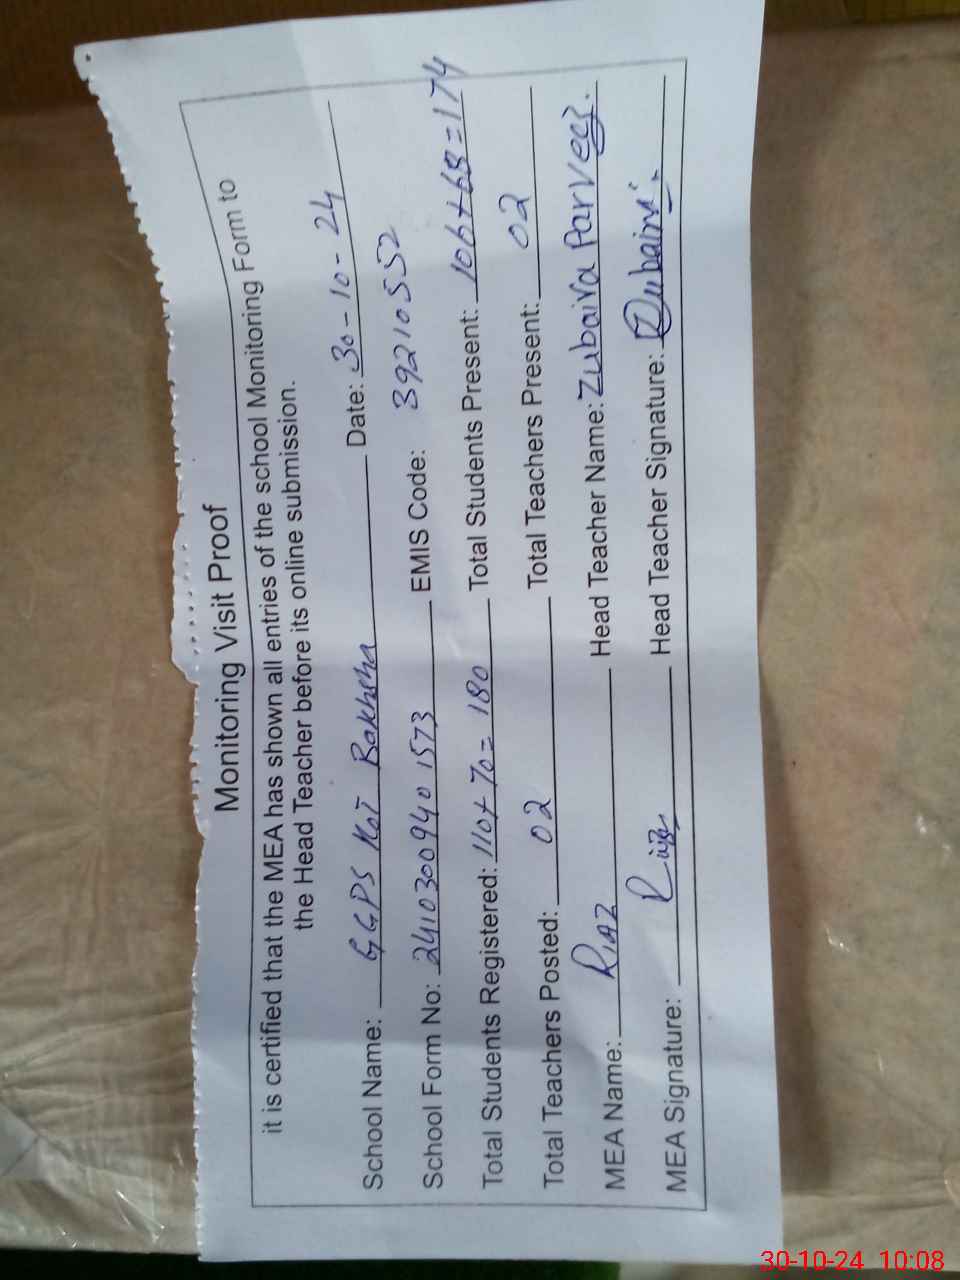 Monitoring Visit Proof
it is certified that the MEA has shown all entries of the school Monitoring Form to
the Head Teacher before its online submission.
School Name: GGPS Kot Bakhsha Date: 30-10-24
School Form No: 2410300940 1573 EMIS Code: 39210552
Total Students Registered: 110+70=180 Total Students Present: 106+68=174
Total Teachers Posted: 02 Total Teachers Present: 02
MEA Name: Riaz Head Teacher Name: Zubaira Parveez.
MEA Signature: Riaz Head Teacher Signature:
30-10-24 10:08